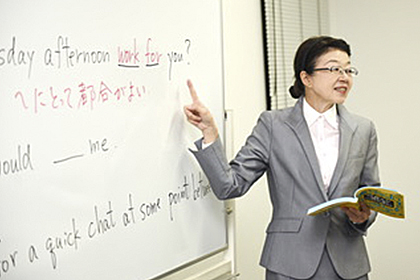 sday afternoon work for you?
〜にとって都合がよい
ould ___ me.
for a quick chat at some point betwe